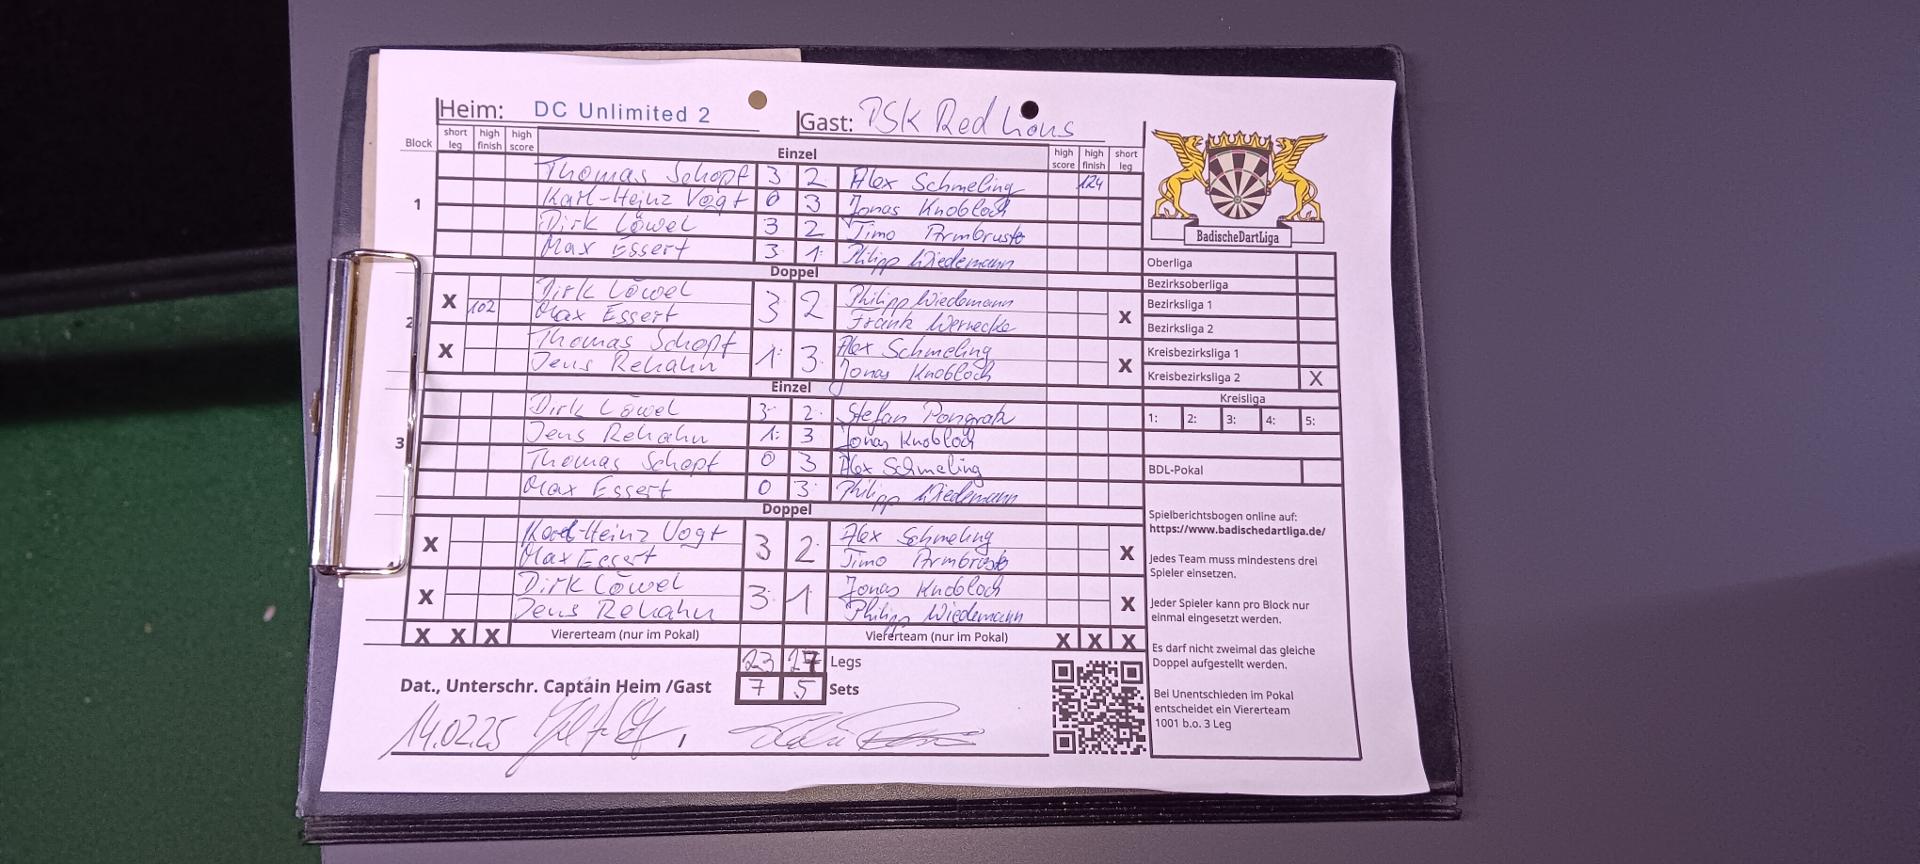 Heim: DC Unlimited 2 Gast: PSK Red Lions
Block short leg high finish high score Einzel high score high finish short leg
1
Thomas Schopf 3 2 Alex Schmeling 124
Karl-Heinz Vogt 0 3 Jonas Knobloch
Dirk Löwel 3 2 Timo Armbruste
Max Essert 3 1 Philipp Wiedemann
Doppel
2
X Dirk Löwel 3 2 Philipp Wiedemann X
102 Max Essert Frank Wernecke
X Thomas Schopf 1 3 Alex Schmeling X
Jens Rehahn Jonas Knobloch
Einzel
3
Dirk Löwel 3 2 Stefan Pongratz
Jens Rehahn 1 3 Jonas Knobloch
Thomas Schopf 0 3 Alex Schmeling
Max Essert 0 3 Philipp Wiedemann
Doppel
X Karl-Heinz Vogt 3 2 Alex Schmeling X
Max Essert Timo Armbruste
X Dirk Löwel 3 1 Jonas Knobloch X
Jens Rehahn Philipp Wiedemann
X X X Viererteam (nur im Pokal) Viererteam (nur im Pokal) X X X
23 27 Legs
Dat., Unterschr. Captain Heim /Gast 7 5 Sets
14.02.25
BadischeDartLiga
Oberliga
Bezirksoberliga
Bezirksliga 1
Bezirksliga 2
Kreisbezirksliga 1
Kreisbezirksliga 2 X
Kreisliga
1: 2: 3: 4: 5:
BDL-Pokal
Spielberichtsbogen online auf:
https://www.badischedartliga.de/
Jedes Team muss mindestens drei
Spieler einsetzen.
Jeder Spieler kann pro Block nur
einmal eingesetzt werden.
Es darf nicht zweimal das gleiche
Doppel aufgestellt werden.
Bei Unentschieden im Pokal
entscheidet ein Viererteam
1001 b.o. 3 Leg